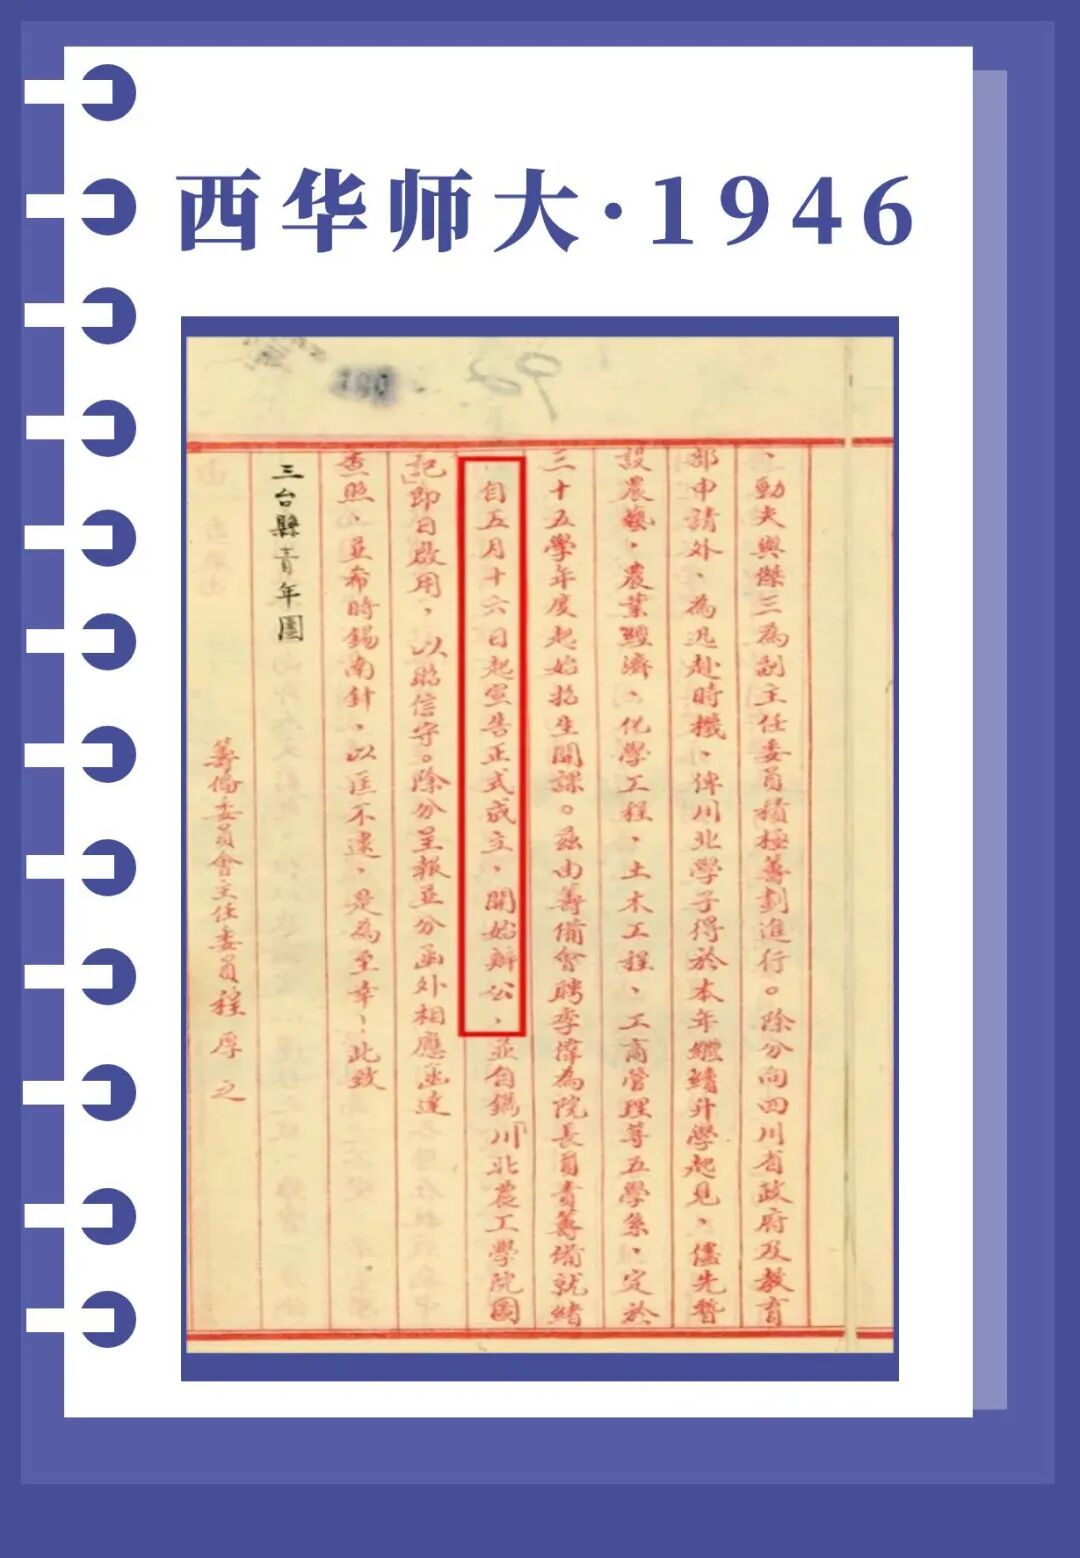 西华师大·1946
92
190
、動夫與傑三為副主任委員積極籌劃進行。除分向四川省政府及教育
部申請外、為迅赴時機、俾川北學子得於本年繼續升學起見、儘先暫
設農藝、農業經濟、化學工程、土木工程、工商管理等五學系、定於
三十五學年度起始招生開課。茲由籌備會聘李偉為院長員責籌備就緒
、自五月十六日起宣告正式成立，開始辦公，並自鐫「川北農工學院圖
記」即日啟用，以昭信守。除分呈報並分函外相應函達
查照、並希時錫南針、以匡不逮、是為至幸！此致
三台縣青年團
籌備委員會主任委員程厚之